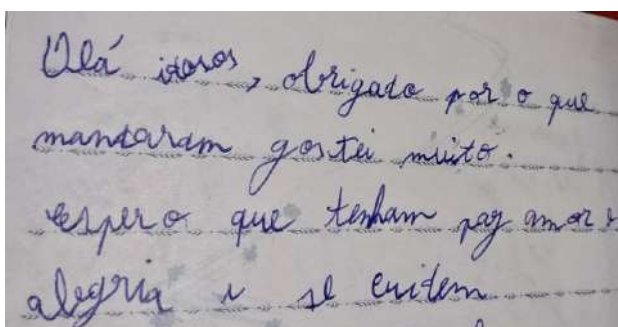 Olá idosos, obrigado por o que
mandaram gostei muito.
espero que tenham paz amor e
alegria e se cuidem